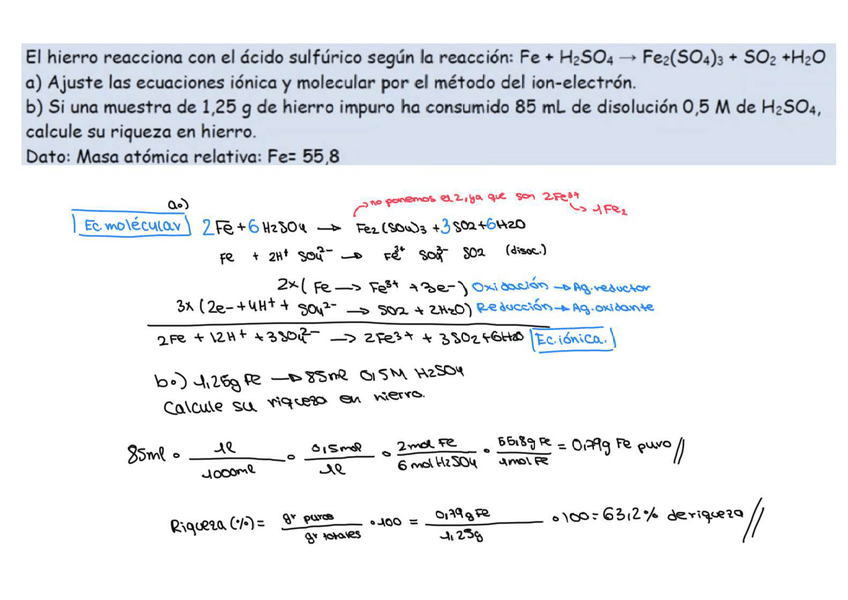 El hierro reacciona con el ácido sulfúrico según la reacción: Fe + H₂SO₄ → Fe₂(SO₄)₃ + SO₂ +H₂O
a) Ajuste las ecuaciones iónica y molecular por el método del ion-electrón.
b) Si una muestra de 1,25 g de hierro impuro ha consumido 85 mL de disolución 0,5 M de H₂SO₄,
calcule su riqueza en hierro.
Dato: Masa atómica relativa: Fe= 55,8
a.)
no ponemos el 2, ya que son 2Fe³⁺
↳ 1Fe₂
Ec. molécular 2Fe + 6H₂SO₄ → Fe₂(SO₄)₃ + 3SO₂ + 6H₂O
Fe + 2H⁺ SO₄²⁻ → Fe³⁺ SO₄²⁻ SO₂ (disoc.)
2x( Fe → Fe³⁺ + 3e-) Oxidación → Ag. reductor
3x (2e- + 4H⁺ + SO₄²⁻ → SO₂ + 2H₂O) Reducción → Ag. oxidante
2Fe + 12H⁺ + 3SO₄²⁻ → 2Fe³⁺ + 3SO₂ + 6H₂O Ec. iónica.
b.) 1,25g Fe → 85ml 0,5M H₂SO₄
Calcule su riqueza en hierro.
85ml · 1l/1000ml · 0,5mol/1l · 2mol Fe/6 mol H₂SO₄ · 55,8g Fe/1mol Fe = 0,79g Fe puro //
Riqueza (%) = gr puros/gr totales · 100 = 0,79g Fe/1,25g · 100 = 63,2% de riqueza //